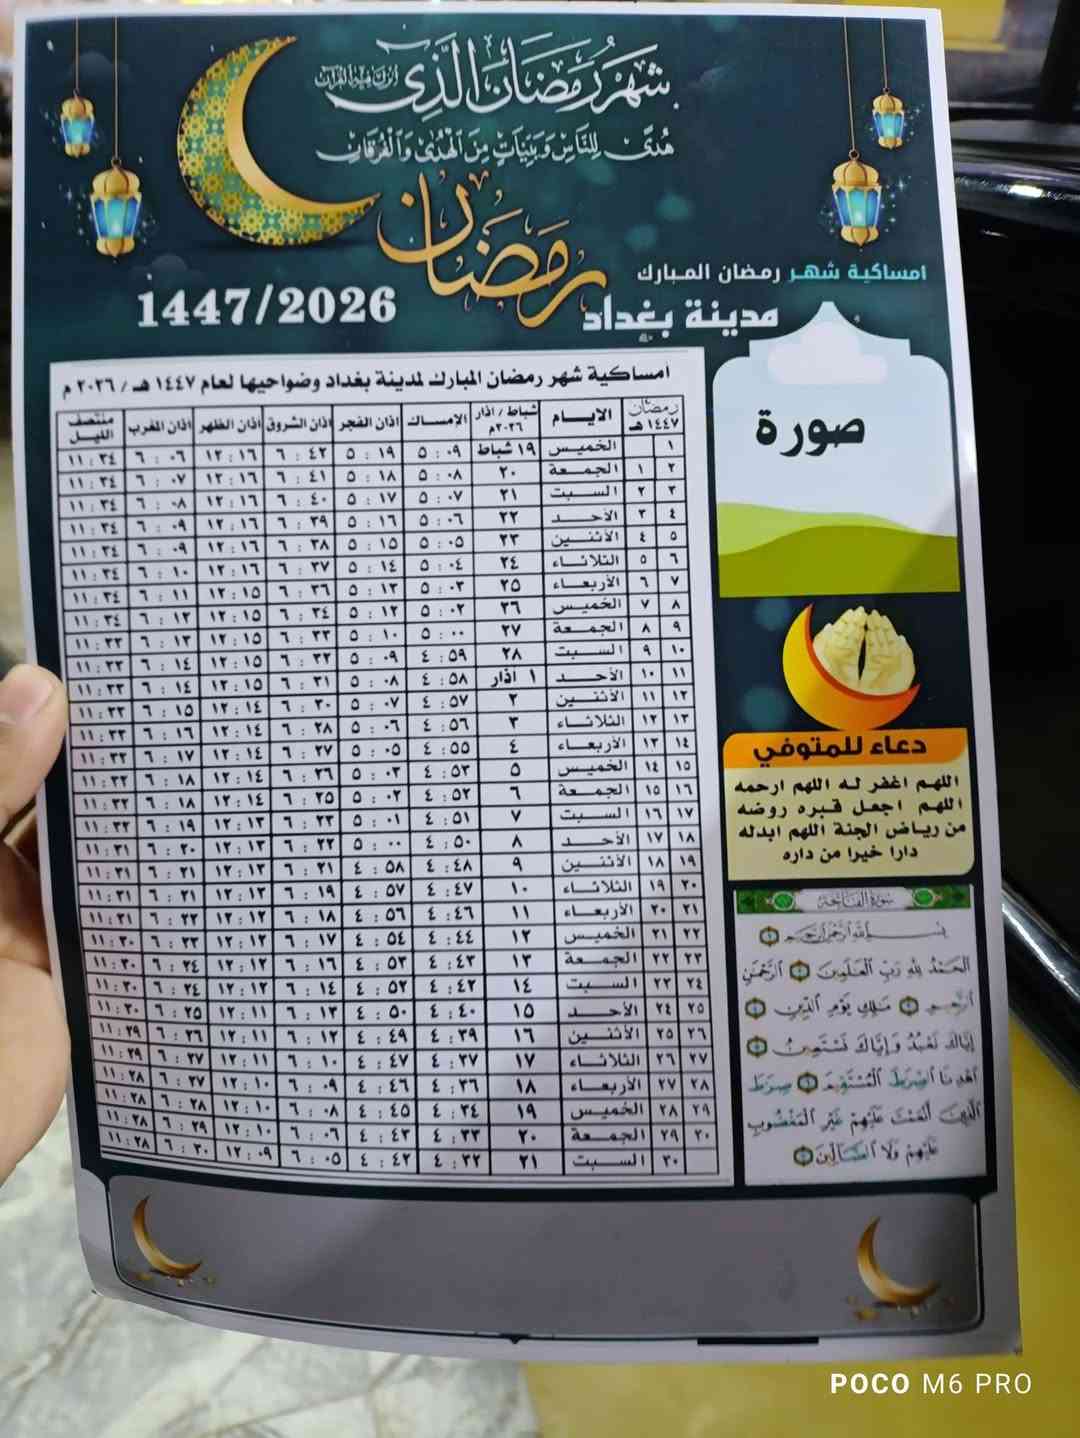 شَهْرُ رَمَضَانَ الَّذِي أُنْزِلَ فِيهِ الْقُرْآنُ
هُدًى لِلنَّاسِ وَبَيِّنَاتٍ مِنَ الْهُدَىٰ وَالْفُرْقَانِ
رمضان
امساكية شهر رمضان المبارك
مدينة بغداد
1447/2026
أمساكية شهر رمضان المبارك لمدينة بغداد وضواحيها لعام ١٤٤٧ هـ / ٢٠٢٦ م
رمضان ١٤٤٧ هـ الايام شباط / اذار ٢٠٢٦م الامساك اذان الفجر اذان الشروق اذان الظهر اذان المغرب منتصف الليل
١ الخميس ١٩ شباط ٥ : ٠٩ ٥ : ١٩ ٦ : ٤٢ ١٢ : ١٦ ٦ : ٠٦ ١١ : ٣٤
٢ ١ الجمعة ٢٠ ٥ : ٠٨ ٥ : ١٨ ٦ : ٤١ ١٢ : ١٦ ٦ : ٠٧ ١١ : ٣٤
٣ ٢ السبت ٢١ ٥ : ٠٧ ٥ : ١٧ ٦ : ٤٠ ١٢ : ١٦ ٦ : ٠٨ ١١ : ٣٤
٤ ٣ الأحد ٢٢ ٥ : ٠٦ ٥ : ١٦ ٦ : ٣٩ ١٢ : ١٦ ٦ : ٠٩ ١١ : ٣٤
٥ ٤ الأثنين ٢٣ ٥ : ٠٥ ٥ : ١٥ ٦ : ٣٨ ١٢ : ١٦ ٦ : ٠٩ ١١ : ٣٤
٦ ٥ الثلاثاء ٢٤ ٥ : ٠٤ ٥ : ١٤ ٦ : ٣٧ ١٢ : ١٦ ٦ : ١٠ ١١ : ٣٤
٧ ٦ الأربعاء ٢٥ ٥ : ٠٣ ٥ : ١٣ ٦ : ٣٦ ١٢ : ١٥ ٦ : ١١ ١١ : ٣٤
٨ ٧ الخميس ٢٦ ٥ : ٠٢ ٥ : ١٢ ٦ : ٣٤ ١٢ : ١٥ ٦ : ١٢ ١١ : ٣٤
٩ ٨ الجمعة ٢٧ ٥ : ٠٠ ٥ : ١٠ ٦ : ٣٣ ١٢ : ١٥ ٦ : ١٣ ١١ : ٣٣
١٠ ٩ السبت ٢٨ ٤ : ٥٩ ٥ : ٠٩ ٦ : ٣٢ ١٢ : ١٥ ٦ : ١٤ ١١ : ٣٣
١١ ١٠ الأحد ١ أذار ٤ : ٥٨ ٥ : ٠٨ ٦ : ٣١ ١٢ : ١٥ ٦ : ١٤ ١١ : ٣٣
١٢ ١١ الأثنين ٢ ٤ : ٥٧ ٥ : ٠٧ ٦ : ٣٠ ١٢ : ١٤ ٦ : ١٥ ١١ : ٣٣
١٣ ١٢ الثلاثاء ٣ ٤ : ٥٦ ٥ : ٠٦ ٦ : ٢٨ ١٢ : ١٤ ٦ : ١٦ ١١ : ٣٣
١٤ ١٣ الأربعاء ٤ ٤ : ٥٥ ٥ : ٠٥ ٦ : ٢٧ ١٢ : ١٤ ٦ : ١٧ ١١ : ٣٢
١٥ ١٤ الخميس ٥ ٤ : ٥٣ ٥ : ٠٣ ٦ : ٢٦ ١٢ : ١٤ ٦ : ١٨ ١١ : ٣٢
١٦ ١٥ الجمعة ٦ ٤ : ٥٢ ٥ : ٠٢ ٦ : ٢٥ ١٢ : ١٤ ٦ : ١٨ ١١ : ٣٢
١٧ ١٦ السبت ٧ ٤ : ٥١ ٥ : ٠١ ٦ : ٢٣ ١٢ : ١٣ ٦ : ١٩ ١١ : ٣٢
١٨ ١٧ الأحد ٨ ٤ : ٥٠ ٥ : ٠٠ ٦ : ٢٢ ١٢ : ١٣ ٦ : ٢٠ ١١ : ٣١
١٩ ١٨ الأثنين ٩ ٤ : ٤٨ ٤ : ٥٨ ٦ : ٢١ ١٢ : ١٣ ٦ : ٢١ ١١ : ٣١
٢٠ ١٩ الثلاثاء ١٠ ٤ : ٤٧ ٤ : ٥٧ ٦ : ١٩ ١٢ : ١٣ ٦ : ٢١ ١١ : ٣١
٢١ ٢٠ الأربعاء ١١ ٤ : ٤٦ ٤ : ٥٦ ٦ : ١٨ ١٢ : ١٢ ٦ : ٢٢ ١١ : ٣١
٢٢ ٢١ الخميس ١٢ ٤ : ٤٤ ٤ : ٥٤ ٦ : ١٧ ١٢ : ١٢ ٦ : ٢٣ ١١ : ٣٠
٢٣ ٢٢ الجمعة ١٣ ٤ : ٤٣ ٤ : ٥٣ ٦ : ١٦ ١٢ : ١٢ ٦ : ٢٤ ١١ : ٣٠
٢٤ ٢٣ السبت ١٤ ٤ : ٤٢ ٤ : ٥٢ ٦ : ١٤ ١٢ : ١٢ ٦ : ٢٤ ١١ : ٣٠
٢٥ ٢٤ الأحد ١٥ ٤ : ٤٠ ٤ : ٥٠ ٦ : ١٣ ١٢ : ١١ ٦ : ٢٥ ١١ : ٣٠
٢٦ ٢٥ الأثنين ١٦ ٤ : ٣٩ ٤ : ٤٩ ٦ : ١٢ ١٢ : ١١ ٦ : ٢٦ ١١ : ٢٩
٢٧ ٢٦ الثلاثاء ١٧ ٤ : ٣٧ ٤ : ٤٧ ٦ : ١٠ ١٢ : ١١ ٦ : ٢٧ ١١ : ٢٩
٢٨ ٢٧ الأربعاء ١٨ ٤ : ٣٦ ٤ : ٤٦ ٦ : ٠٩ ١٢ : ١٠ ٦ : ٢٧ ١١ : ٢٨
٢٩ ٢٨ الخميس ١٩ ٤ : ٣٤ ٤ : ٤٥ ٦ : ٠٨ ١٢ : ١٠ ٦ : ٢٨ ١١ : ٢٨
٣٠ ٢٩ الجمعة ٢٠ ٤ : ٣٣ ٤ : ٤٣ ٦ : ٠٦ ١٢ : ١٠ ٦ : ٢٩ ١١ : ٢٨
٣٠ السبت ٢١ ٤ : ٣٢ ٤ : ٤٢ ٦ : ٠٥ ١٢ : ٠٩ ٦ : ٣٠ ١١ : ٢٨
صورة
دعاء للمتوفي
اللهم اغفر له اللهم ارحمه
اللهم اجعل قبره روضه
من رياض الجنة اللهم ابدله
دارا خيرا من داره
سورة الفاتحة
بِسْمِ اللَّهِ الرَّحْمَٰنِ الرَّحِيمِ ١
الْحَمْدُ لِلَّهِ رَبِّ الْعَالَمِينَ ٢ الرَّحْمَٰنِ
الرَّحِيمِ ٣ مَالِكِ يَوْمِ الدِّينِ ٤
إِيَّاكَ نَعْبُدُ وَإِيَّاكَ نَسْتَعِينُ ٥
اهْدِنَا الصِّرَاطَ الْمُسْتَقِيمَ ٦ صِرَاطَ
الَّذِينَ أَنْعَمْتَ عَلَيْهِمْ غَيْرِ الْمَغْضُوبِ
عَلَيْهِمْ وَلَا الضَّالِّينَ ٧
POCO M6 PRO